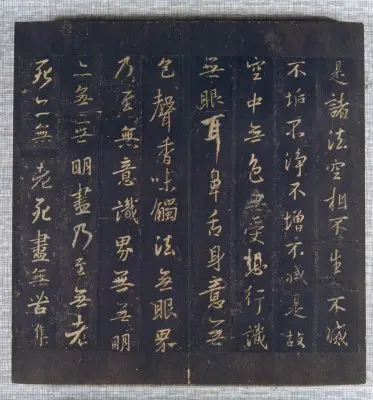 是諸法空相不生不滅
不垢不淨不增不減是故
空中無色無受想行識
無眼耳鼻舌身意無
色聲香味觸法無眼界
乃至無意識界無無明
亦無無明盡乃至無老
死亦無老死盡無苦集